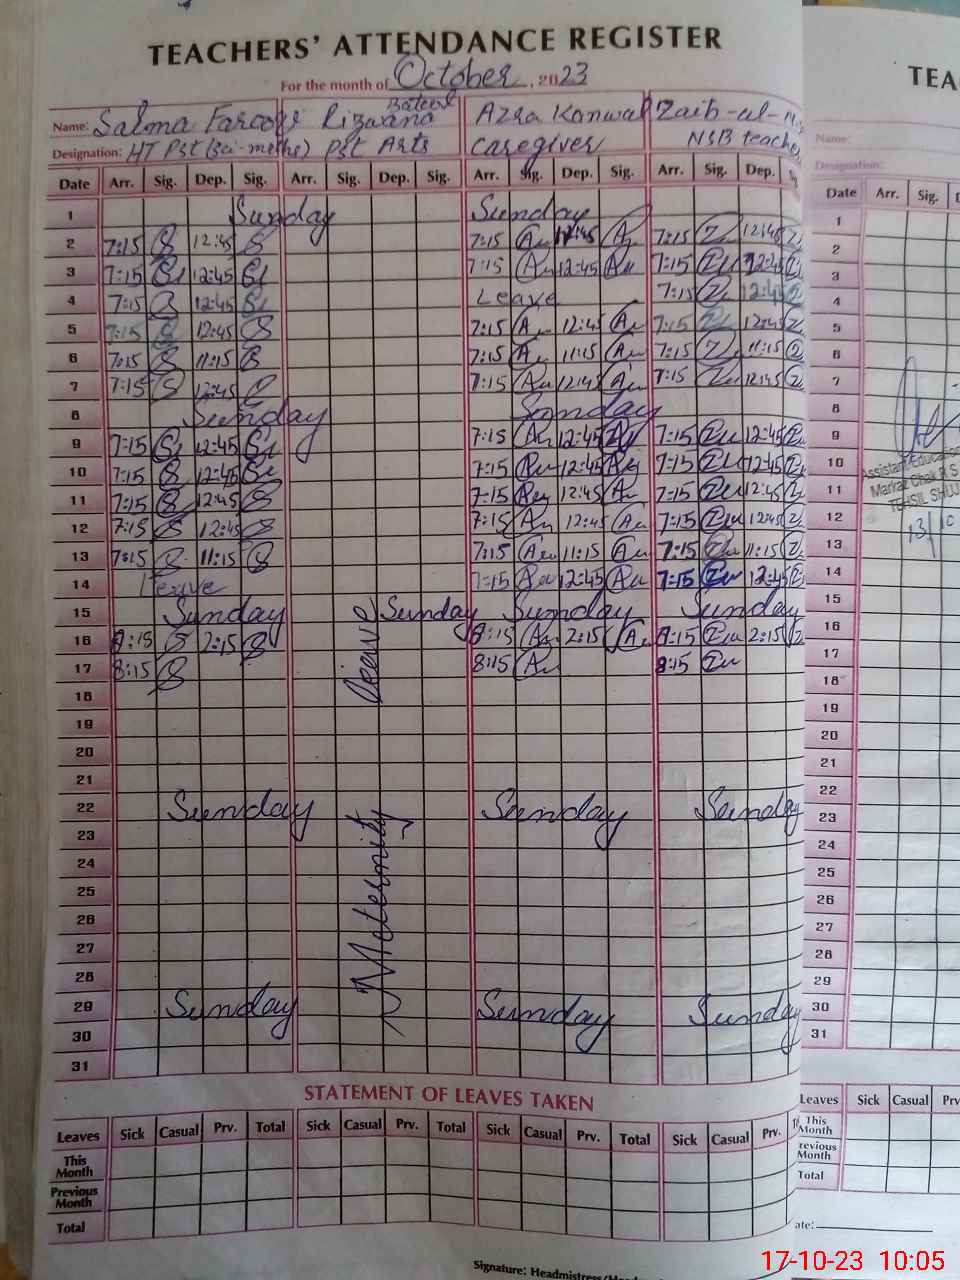 TEACHERS' ATTENDANCE REGISTER
For the month of October, 2023
Name: Salma Farooqi Rizwana Batool Azra Kanwal Zaib-al-
Designation: HT Pst (Sci-maths) Pst Arts Caregiver NSB teacher
Date Arr. Sig. Dep. Sig. Arr. Sig. Dep. Sig. Arr. Sig. Dep. Sig. Arr. Sig. Dep.
1 Sunday Sunday
2 7:15 12:45 7:15 12:45 7:15 12:45
3 7:15 12:45 7:15 12:45 7:15 12:45
4 7:15 12:45 Leave 7:15 12:45
5 7:15 12:45 7:15 12:45 7:15 12:45
6 7:15 11:15 7:15 11:15 7:15 11:15
7 7:15 12:45 7:15 12:45 7:15 12:45
8 Sunday Sunday
9 7:15 12:45 7:15 12:45 7:15 12:45
10 7:15 12:45 7:15 12:45 7:15 12:45
11 7:15 12:45 7:15 12:45 7:15 12:45
12 7:15 12:45 7:15 12:45 7:15 12:45
13 7:15 11:15 7:15 11:15 7:15 11:15
14 Leave 7:15 12:45 7:15 12:45
15 Sunday Sunday Sunday Sunday
16 8:15 2:15 8:15 2:15 8:15 2:15
17 8:15 8:15 8:15
18
19
20
21
22 Sunday Sunday Sunday
23
24
25
26
27
28
29 Sunday Sunday Sunday
30
31
Meternity Leeve
STATEMENT OF LEAVES TAKEN
Leaves Sick Casual Prv. Total Sick Casual Prv. Total Sick Casual Prv. Total Sick Casual Prv.
This Month
Previous Month
Total
Signature: Headmistress/
TEA
Name:
Designation:
Date Arr. Sig. D
1
2
3
4
5
6
7
8
9
10
11
12
13
14
15
16
17
18
19
20
21
22
23
24
25
26
27
28
29
30
31
Assistant Education
Markaz Chak R.S
TEHSIL SHUJ
13/10
Leaves Sick Casual Prv
This Month
revious Month
Total
ate:
17-10-23 10:05